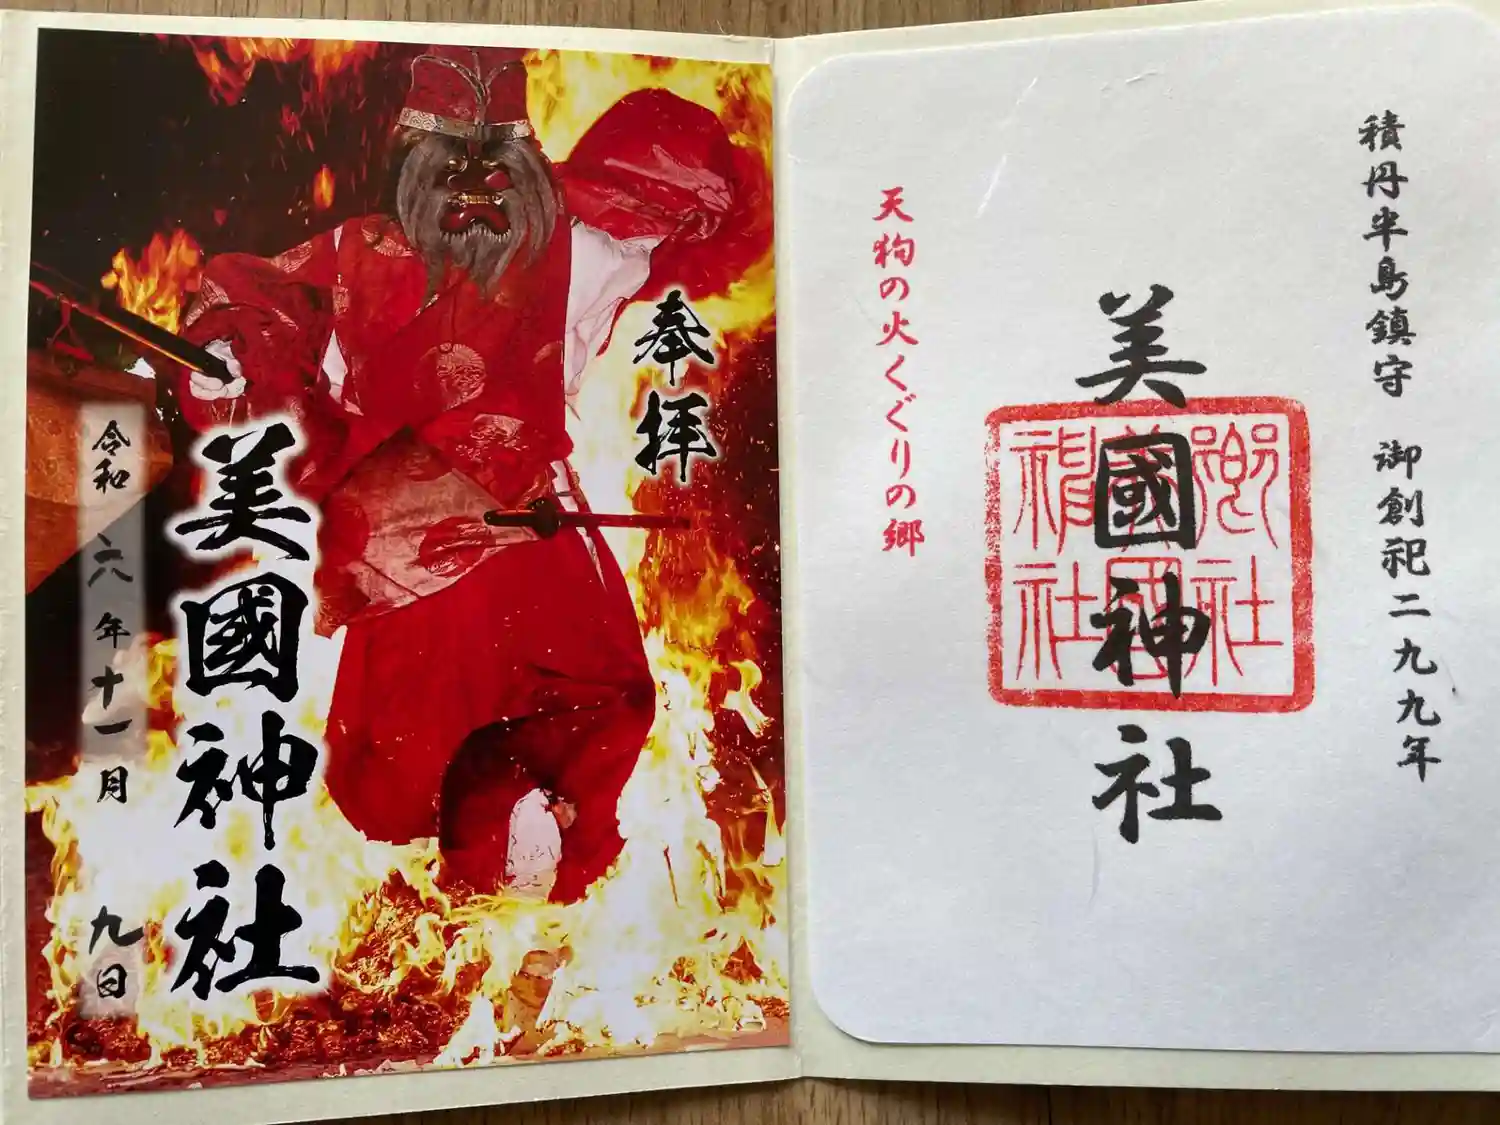 奉拝
美國神社
令和六年十一月九日
積丹半島鎮守 御創祀二九九年
美國神社
郷社
美國
神社
天狗の火くぐりの郷